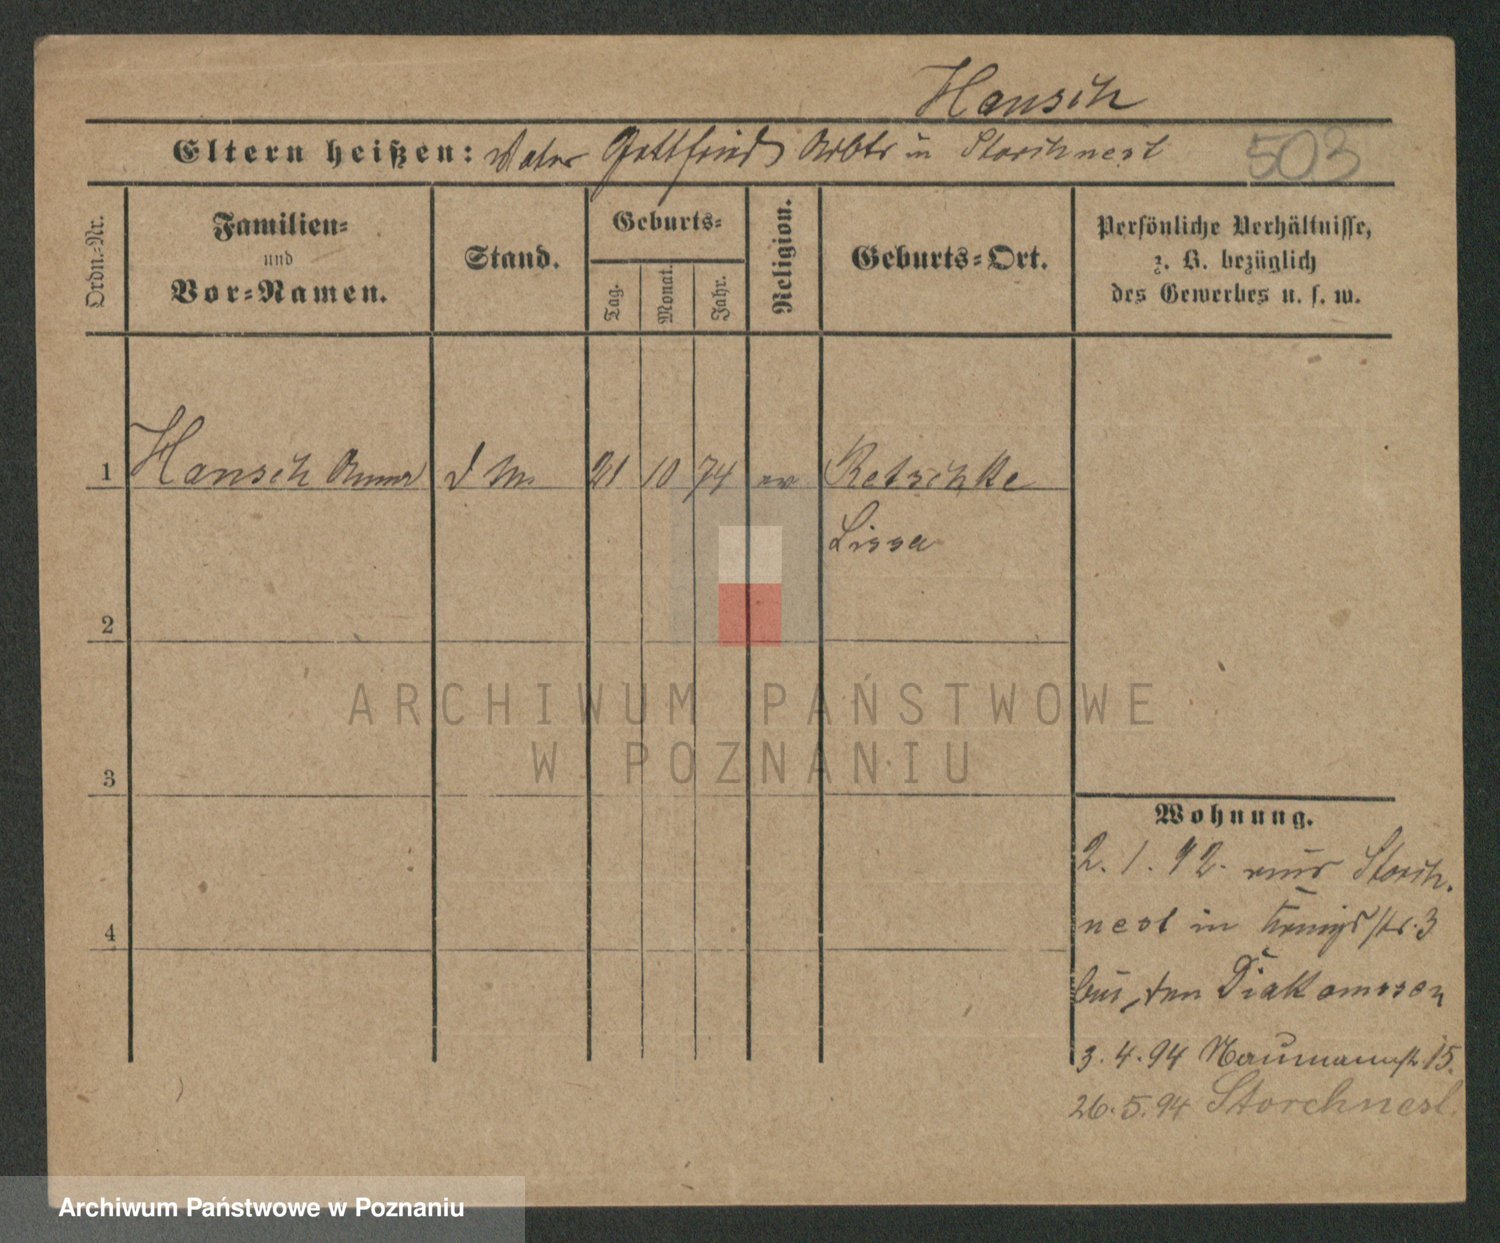 Hansch
Eltern heißen: Vater Gottfried Arbtr in Storchnest
503
Ordn.-Nr.
Familien-
und
Vor-Namen.
Stand.
Geburts-
Tag.
Monat.
Jahr.
Religion.
Geburts-Ort.
Persönliche Verhältnisse,
z. B. bezüglich
des Gewerbes u. s. w.
1 Hansch Anna d M 21 10 74 ev Retschke
Lissa
2
3
4
Wohnung.
2. 1. 92. aus Storch.
nest in Königsstr. 3
bei den Diakonissen
3. 4. 94 Naumannstr 15.
26. 5. 94 Storchnest.
ARCHIWUM PAŃSTWOWE
W POZNANIU
Archiwum Państwowe w Poznaniu